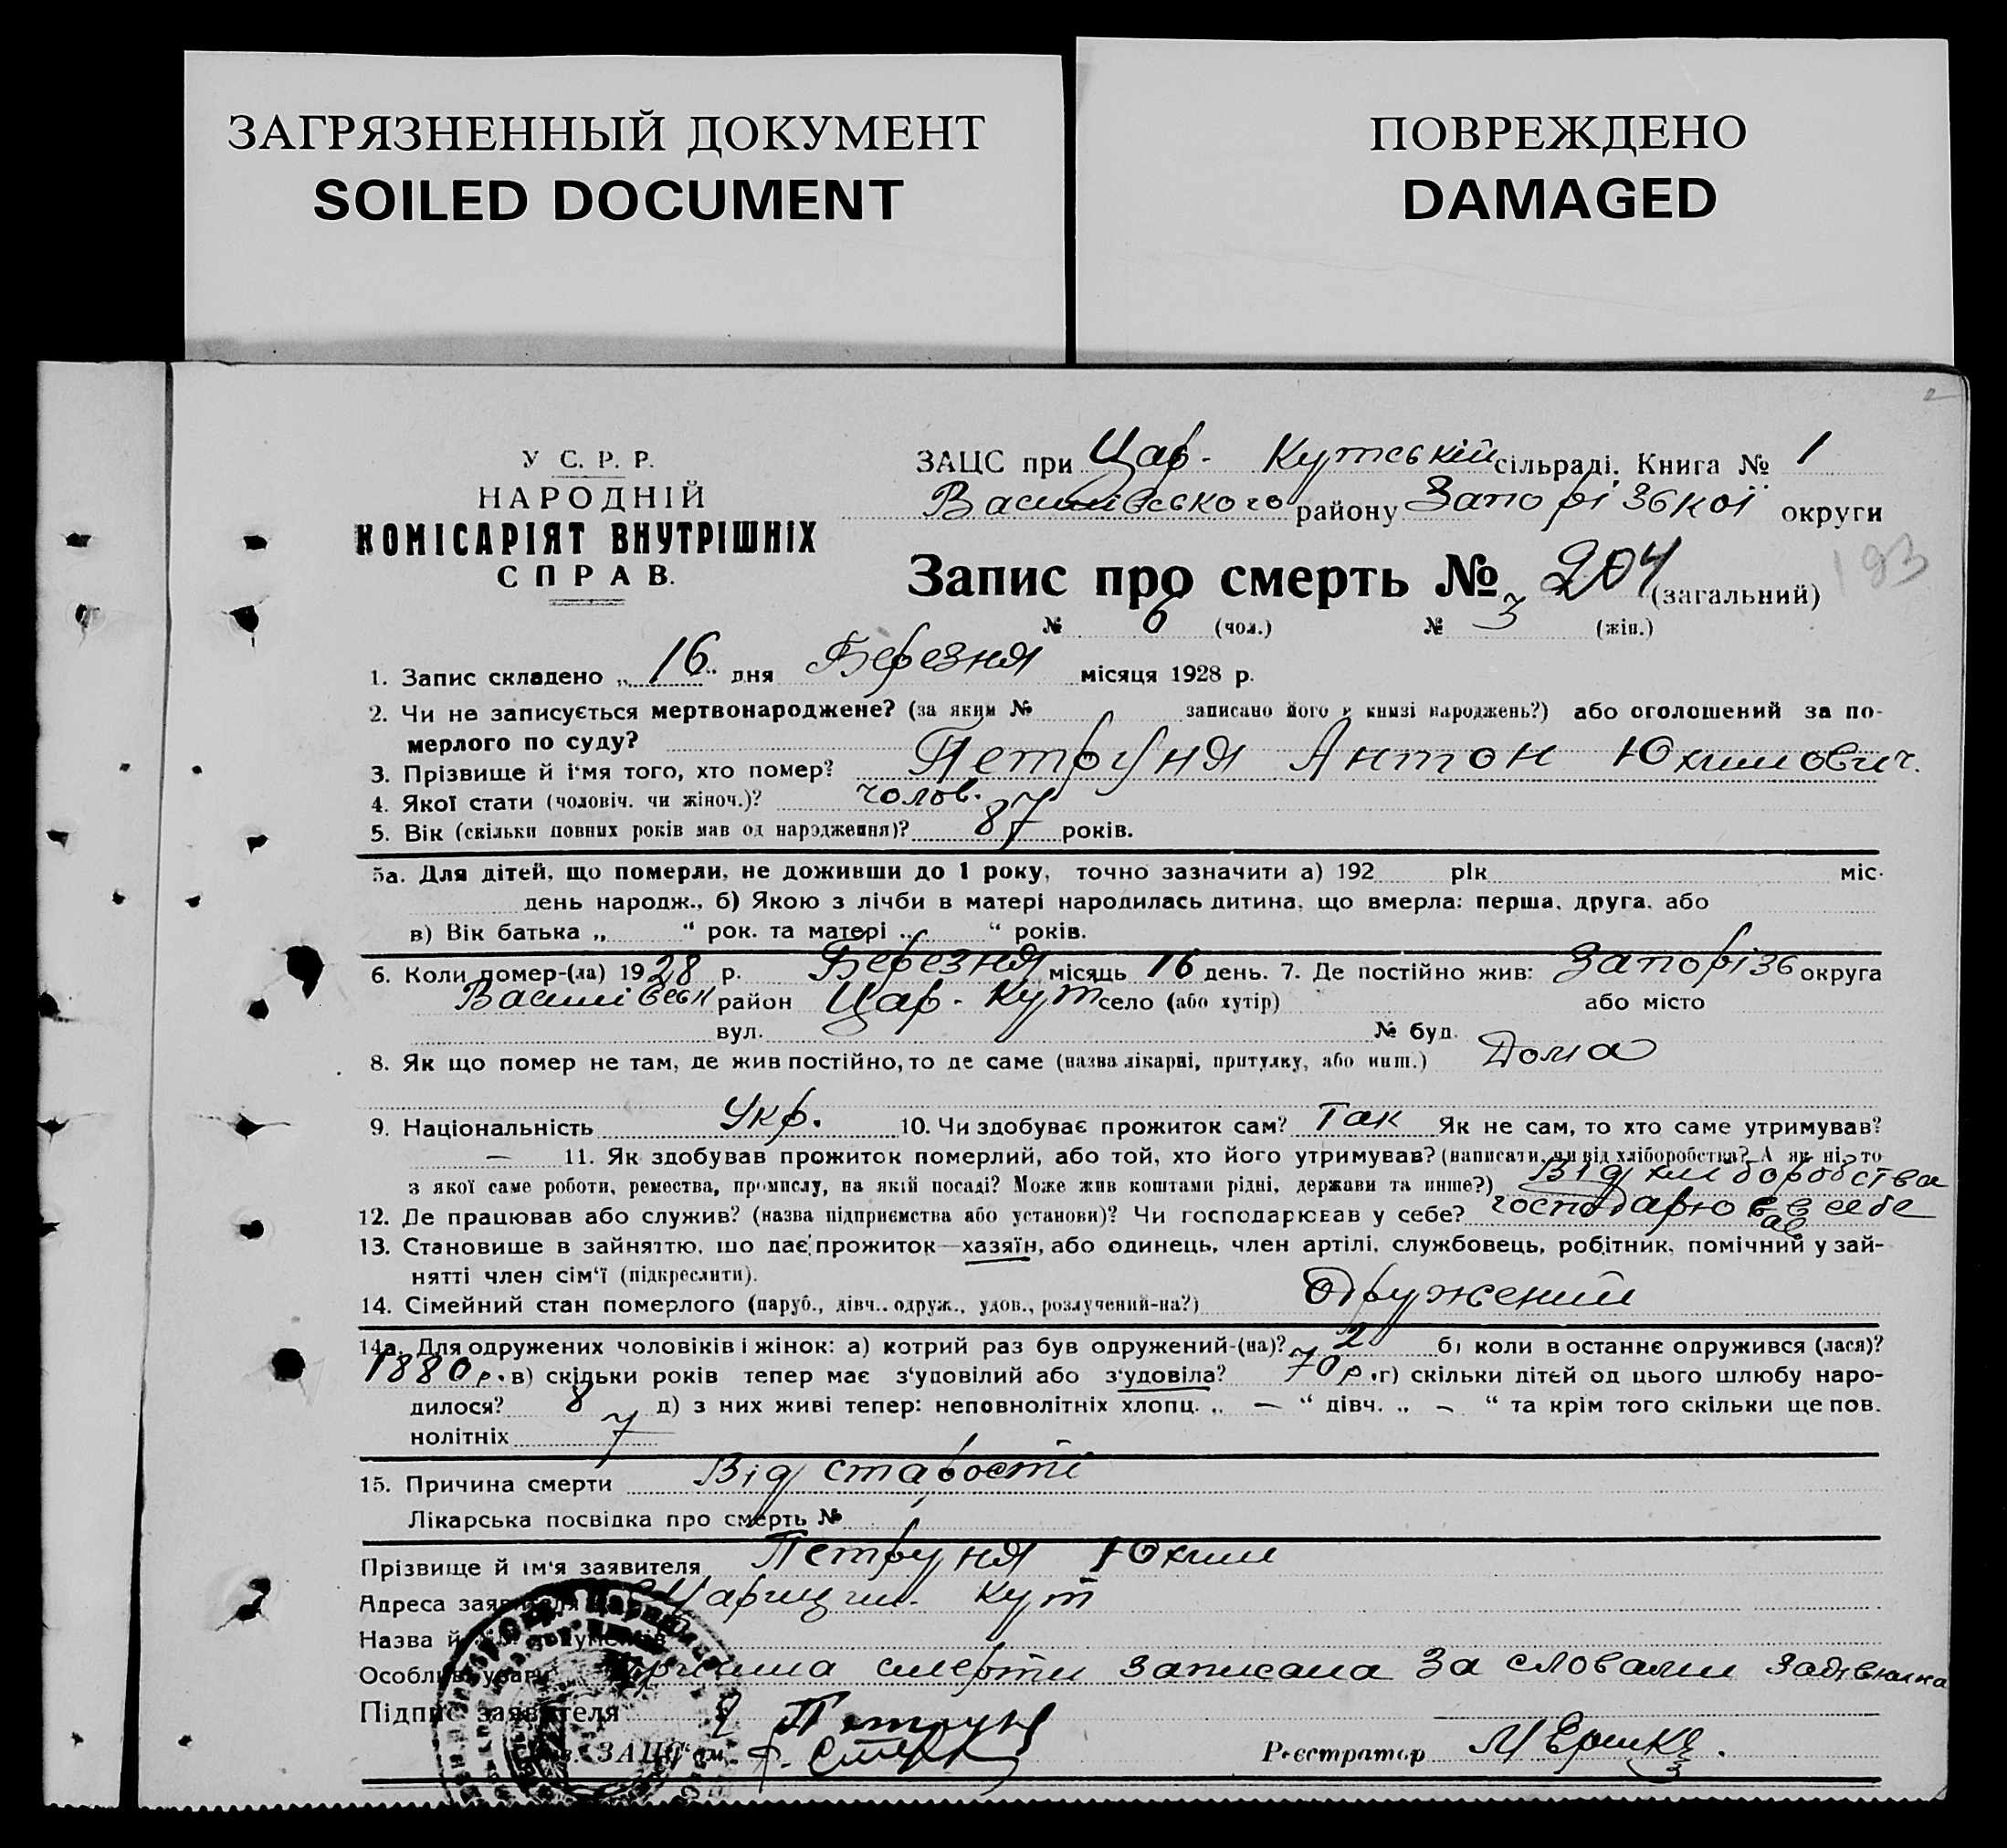 ЗАГРЯЗНЕННЫЙ ДОКУМЕНТ
SOILED DOCUMENT
ПОВРЕЖДЕНО
DAMAGED
2
У С. Р. Р.
НАРОДНІЙ
КОМІСАРІЯТ ВНУТРІШНІХ
СПРАВ.
ЗАЦС при Цар- Кутській сільраді, Книга № 1
Василівського району Запорізької округи
Запис про смерть № 204 (загальний) 193
№ 6 (чол.) № 3 (жін.)
1. Запис складено „ 16 " дня Березня місяця 1928 р.
2. Чи не записується мертвонароджене? (за яким № записано його в книзі народжень?) або оголошений за по-
мерлого по суду?
3. Прізвище й і'мя того, хто помер? Петруня Антон Юхимович.
4. Якої стати (чоловіч. чи жіноч.)? чолов.
5. Вік (скільки повних років мав од нарэдження)? 87 років.
5а. Для дітей, що померли, не доживши до 1 року, точно зазначити а) 192 рік міс.
день народж., б) Якою з лічби в матері народилась дитина, що вмерла: перша, друга, або
в) Вік батька „ " рок. та матері „ " років.
6. Коли помер-(ла) 1928 р. Березня місяць 16 день. 7. Де постійно жив: Запоріз округа
Василівськ район Цар- Кут село (або хутір) або місто
вул. № буд.
8. Як що помер не там, де жив постійно, то де саме (назва лікарні, притулку, або инш.) Дома
9. Національність Укр. 10. Чи здобуває прожиток сам? Так Як не сам, то хто саме утримував?
— 11. Як здобував прожиток померлий, або той, хто його утримував? (написати, чи від хліборобства? А як ні, то
з якої саме роботи, ремества, промислу, на якій посаді? Може жив коштами рідні, держави та инше?) Від хліборобства
12. Де працював або служив? (назва підприємства або установи)? Чи господарював у себе? господарював в себе
13. Становище в зайняттю, що дає прожиток—хазяїн, або одинець, член артілі, службовець, робітник, помічний у зай-
нятті член сім'ї (підкреслити).
14. Сімейний стан померлого (паруб., дівч., одруж., удов., розлучений-на?) Одружений
14а. Для одружених чоловіків і жінок: а) котрий раз був одружений-(на)? 2 б) коли востаннє одружився (лася)?
1880 р. в) скільки років тепер має з'удовілий або з'удовіла? 70 р. г) скільки дітей од цього шлюбу наро-
дилося? 8 д) з них живі тепер: неповнолітніх хлопц. „ — " дівч. „ — " та крім того скільки ще пов.
нолітніх 7
15. Причина смерти Від старости
Лікарська посвідка про смерть №
Прізвище й ім'я заявителя Петруня Юхим
Адреса заявителя Царицин. Кут
Назва й документів
Особливі уваги Причина смерти записана за словами заявника
Підпис заявителя Петруня
ЗАЦС'ом
Реєстратор